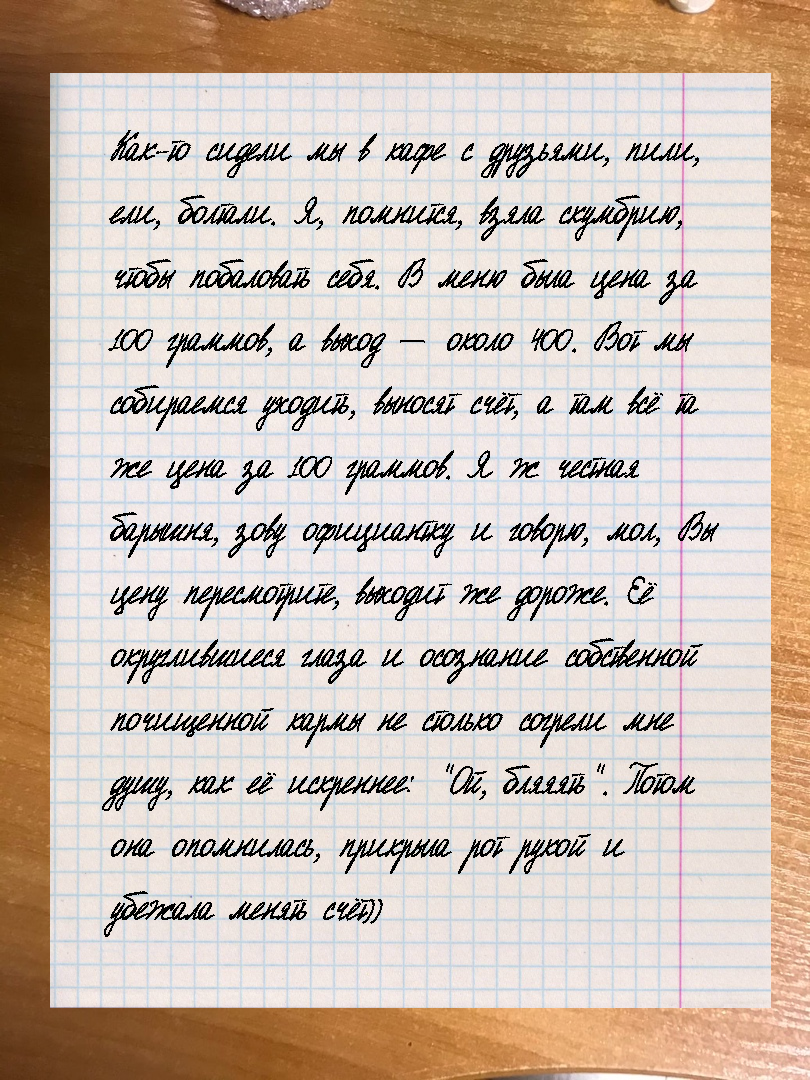 Как-то сидели мы в кафе с друзьями, пили,
ели, болтали. Я, помнится, взяла скумбрию,
чтобы побаловать себя. В меню была цена за
100 граммов, а выход — около 400. Вот мы
собираемся уходить, выносят счёт, а там всё та
же цена за 100 граммов. Я ж честная
барышня, зову официантку и говорю, мол, Вы
цену пересмотрите, выходит же дороже. Её
округлившиеся глаза и осознание собственной
почищенной кармы не столько согрели мне
душу, как её искреннее: "Ой, бляяять". Потом
она опомнилась, прикрыла рот рукой и
убежала менять счёт))